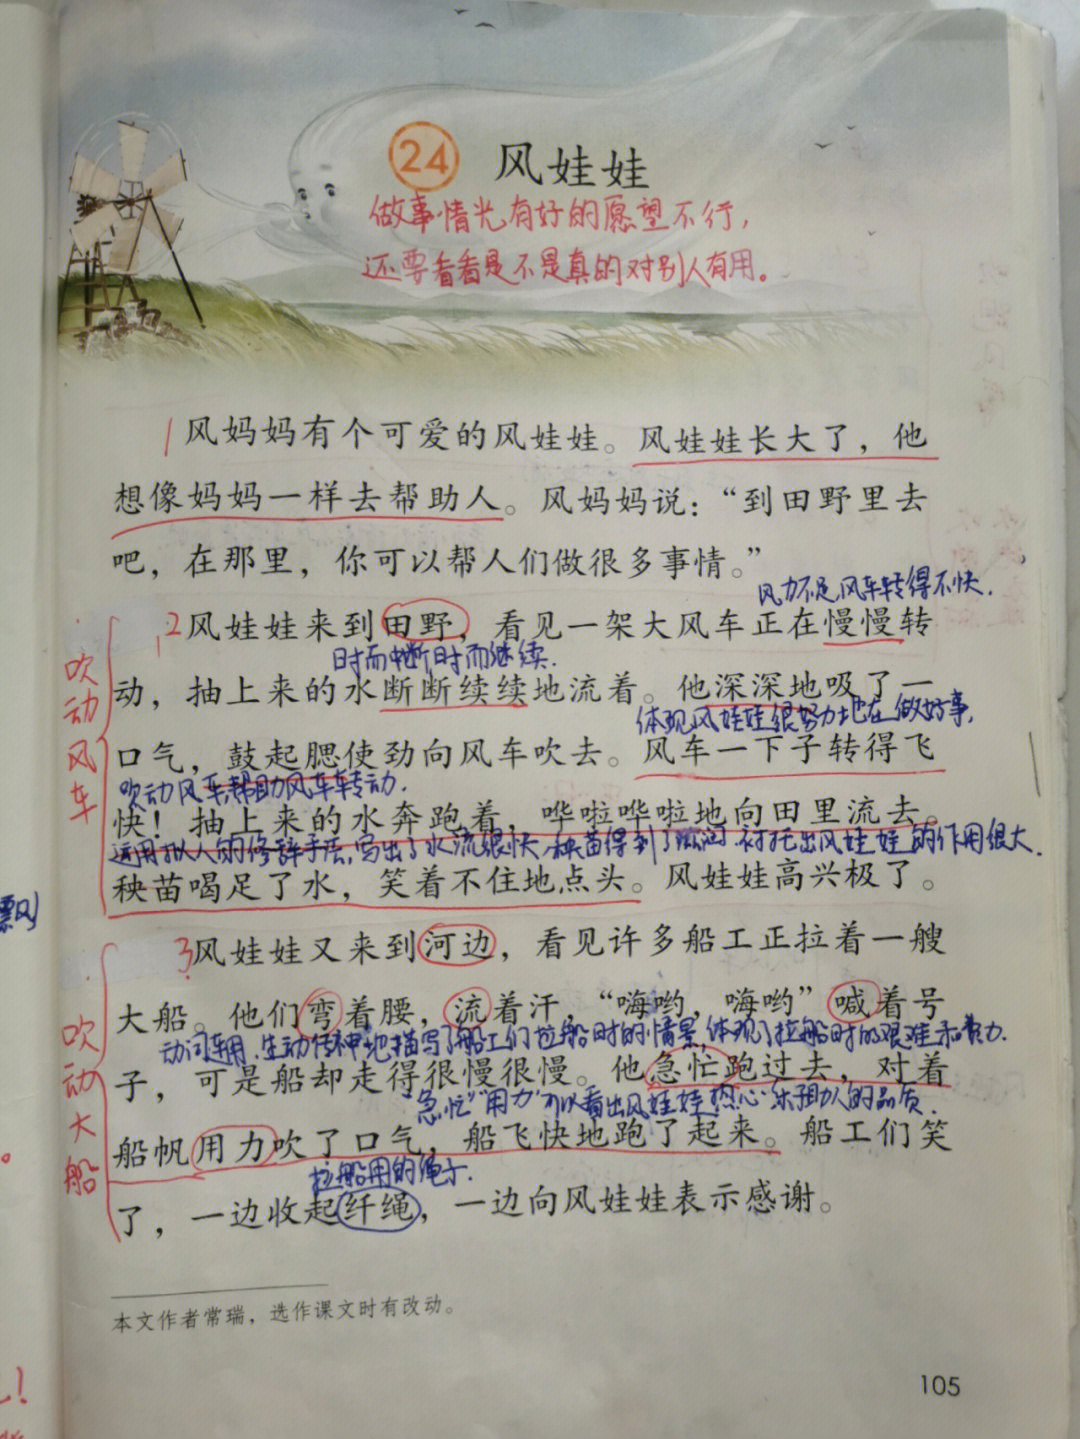 24 风娃娃
做事情光有好的愿望不行，
还要看看是不是真的对别人有用。
1 风妈妈有个可爱的风娃娃。风娃娃长大了，他
想像妈妈一样去帮助人。风妈妈说：“到田野里去
吧，在那里，你可以帮人们做很多事情。”
风力不足，风车转得不快.
2 风娃娃来到田野，看见一架大风车正在慢慢转
时而中断时而继续.
动，抽上来的水断断续续地流着。他深深地吸了一
体现风娃娃很努力地在做好事.
口气，鼓起腮使劲向风车吹去。风车一下子转得飞
吹动风车,帮助风车转动.
快！抽上来的水奔跑着，哗啦哗啦地向田里流去。
运用拟人的修辞手法,写出了水流很快,秧苗得到了滋润.衬托出风娃娃的作用很大.
秧苗喝足了水，笑着不住地点头。风娃娃高兴极了。
吹动风车
3 风娃娃又来到河边，看见许多船工正拉着一艘
大船。他们弯着腰，流着汗，“嗨哟，嗨哟”喊着号
动词连用.生动传神地描写了船工们拉船时的情景,体现了拉船时的艰难和费力.
子，可是船却走得很慢很慢。他急忙跑过去，对着
“急忙”“用力”可以看出风娃娃热心乐于助人的品质.
船帆用力吹了口气，船飞快地跑了起来。船工们笑
拉船用的绳子.
了，一边收起纤绳，一边向风娃娃表示感谢。
吹动大船
本文作者常瑞，选作课文时有改动。
105